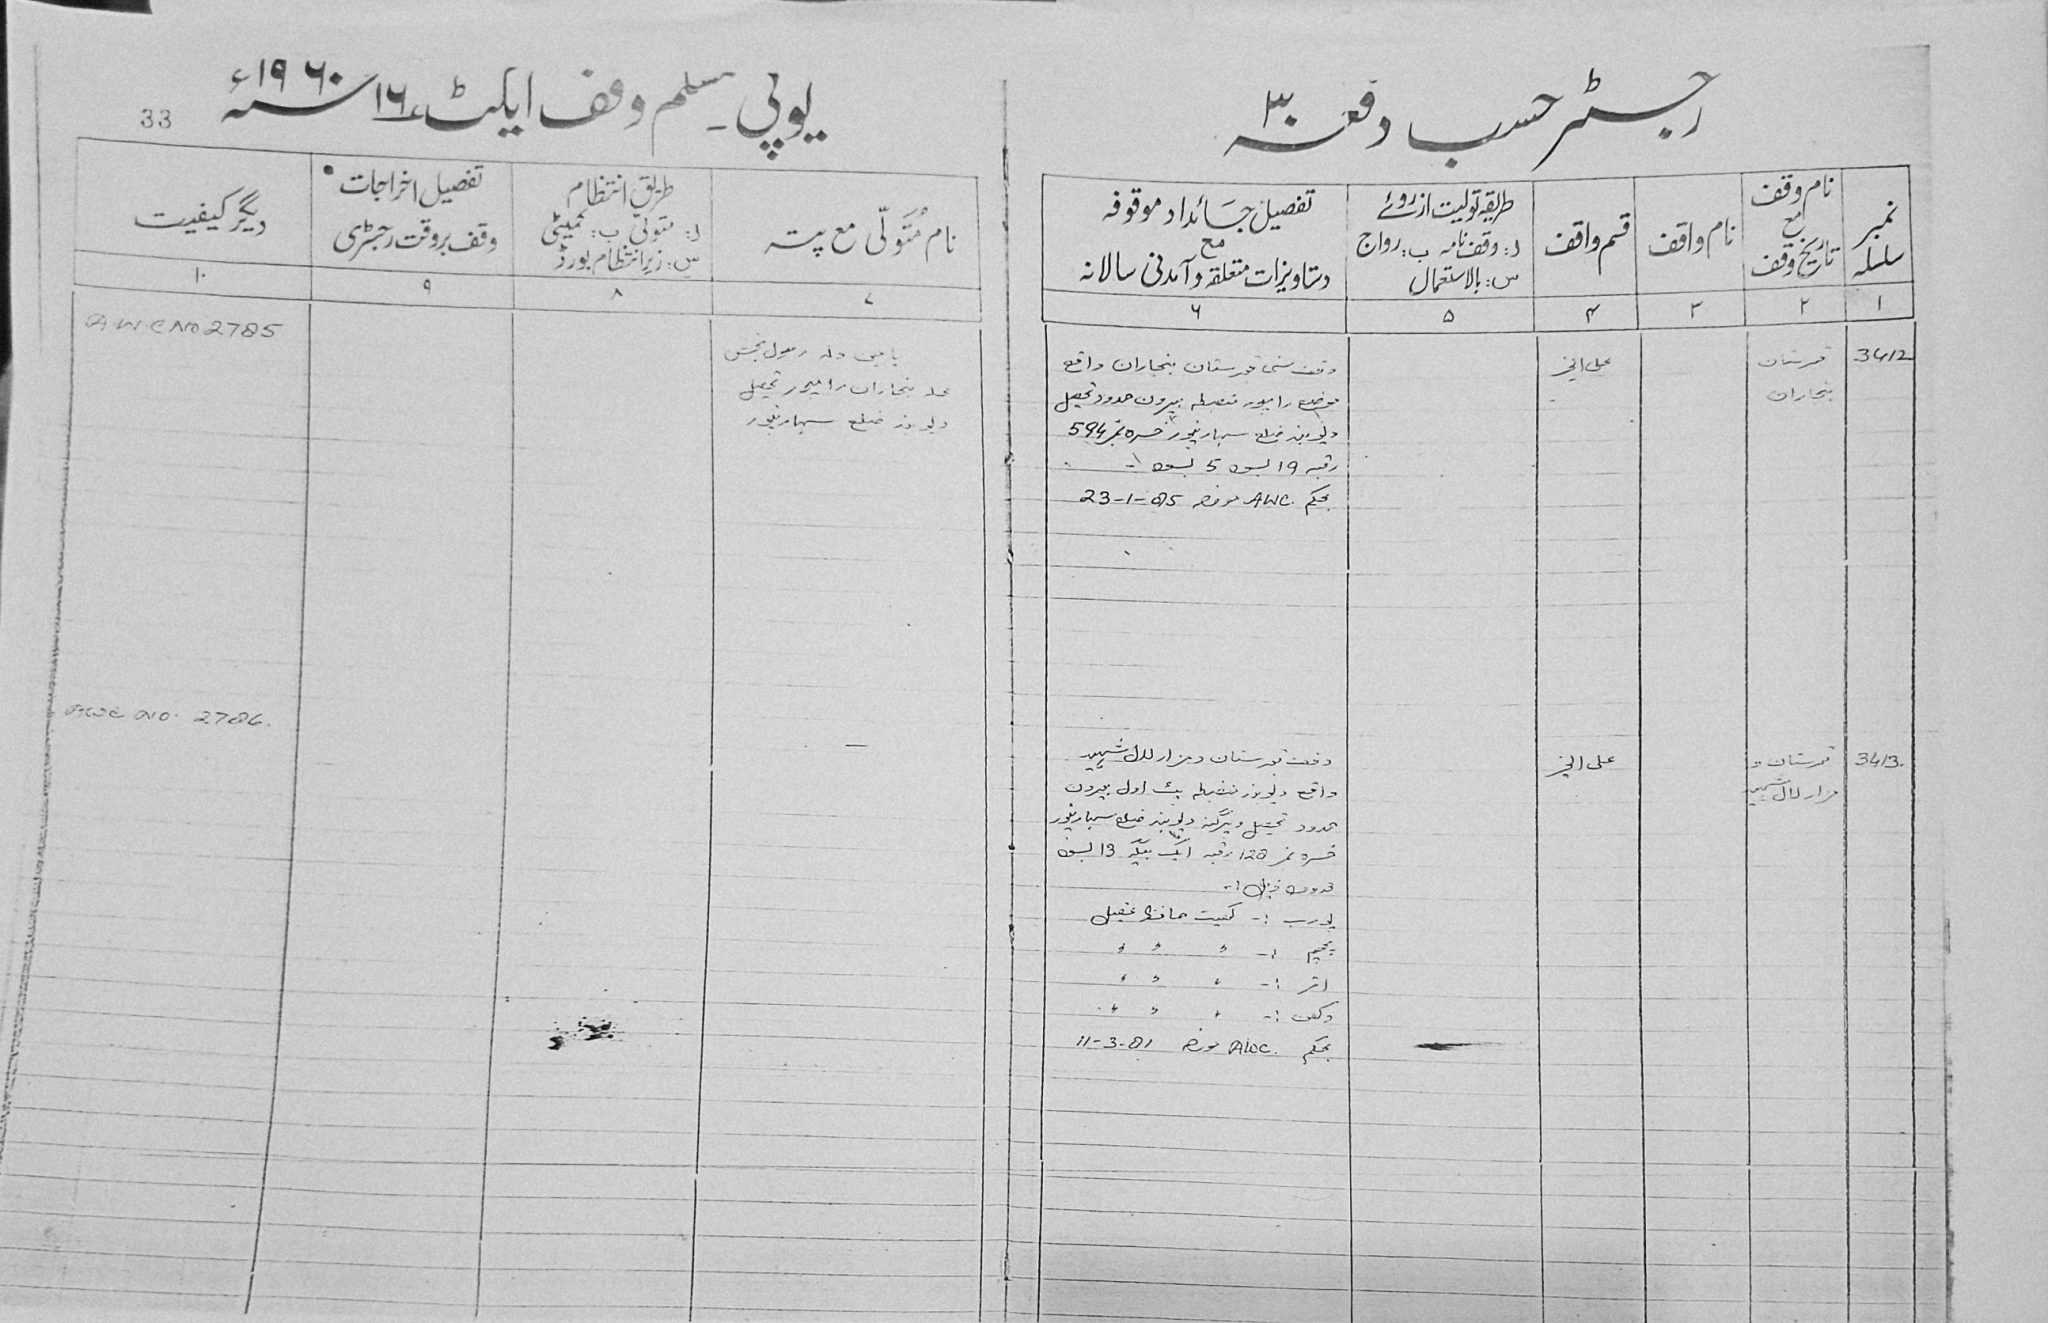 رجسٹر حسب دفعہ ۳۰
یوپی۔ مسلم وقف ایکٹ ۱۶ ۱۹۶۰ء
33
نمبر سلسلہ
نام وقف مع تاریخ وقف
نام واقف
قسم واقف
طریقہ تولیت از روئے
د: وقف نامہ ب: رواج
س: بالاستعمال
تفصیل جائداد موقوفہ
مع
دستاویزات متعلقہ و آمدنی سالانہ
نام مُتَولّی مع پتہ
طریق انتظام
د: متولی ب: کمیٹی
س: زیر انتظام بورڈ
تفصیل اخراجات
وقف بروقت رجسٹری
دیگر کیفیت
۱ ۲ ۳ ۴ ۵ ۶ ۷ ۸ ۹ ۱۰
3412
قبرستان
بنجاران
علی الخیر
وقف سنی قبرستان بنجاران واقع
موضع رامپور منضبطہ بیرون حدود تحصیل
دیوبند ضلع سہارنپور خسرہ نمبر 594
رقبہ 19 بسوہ 5 بسوہ
بحکم AWC. مورخہ 23-1-85
ولد رسول بخش
محلہ بنجاران رامپور تحصیل
دیوبند ضلع سہارنپور
AWC NO 2785
3413.
قبرستان و
مزار لال شہید
علی الخیر
وقف قبرستان و مزار لال شہید
واقع دیوبند منضبطہ اول بیرون
حدود تحصیل و پرگنہ دیوبند ضلع سہارنپور
خسرہ نمبر 128 رقبہ ایک بیگہ 13 بسوہ
حدود ذیل :-
پورب :- کھیت حافظ
پچھم :- " " "
اتر :- " " "
دکھن :- " " "
بحکم AWC. مورخہ 11-3-81
AWC NO. 2786.